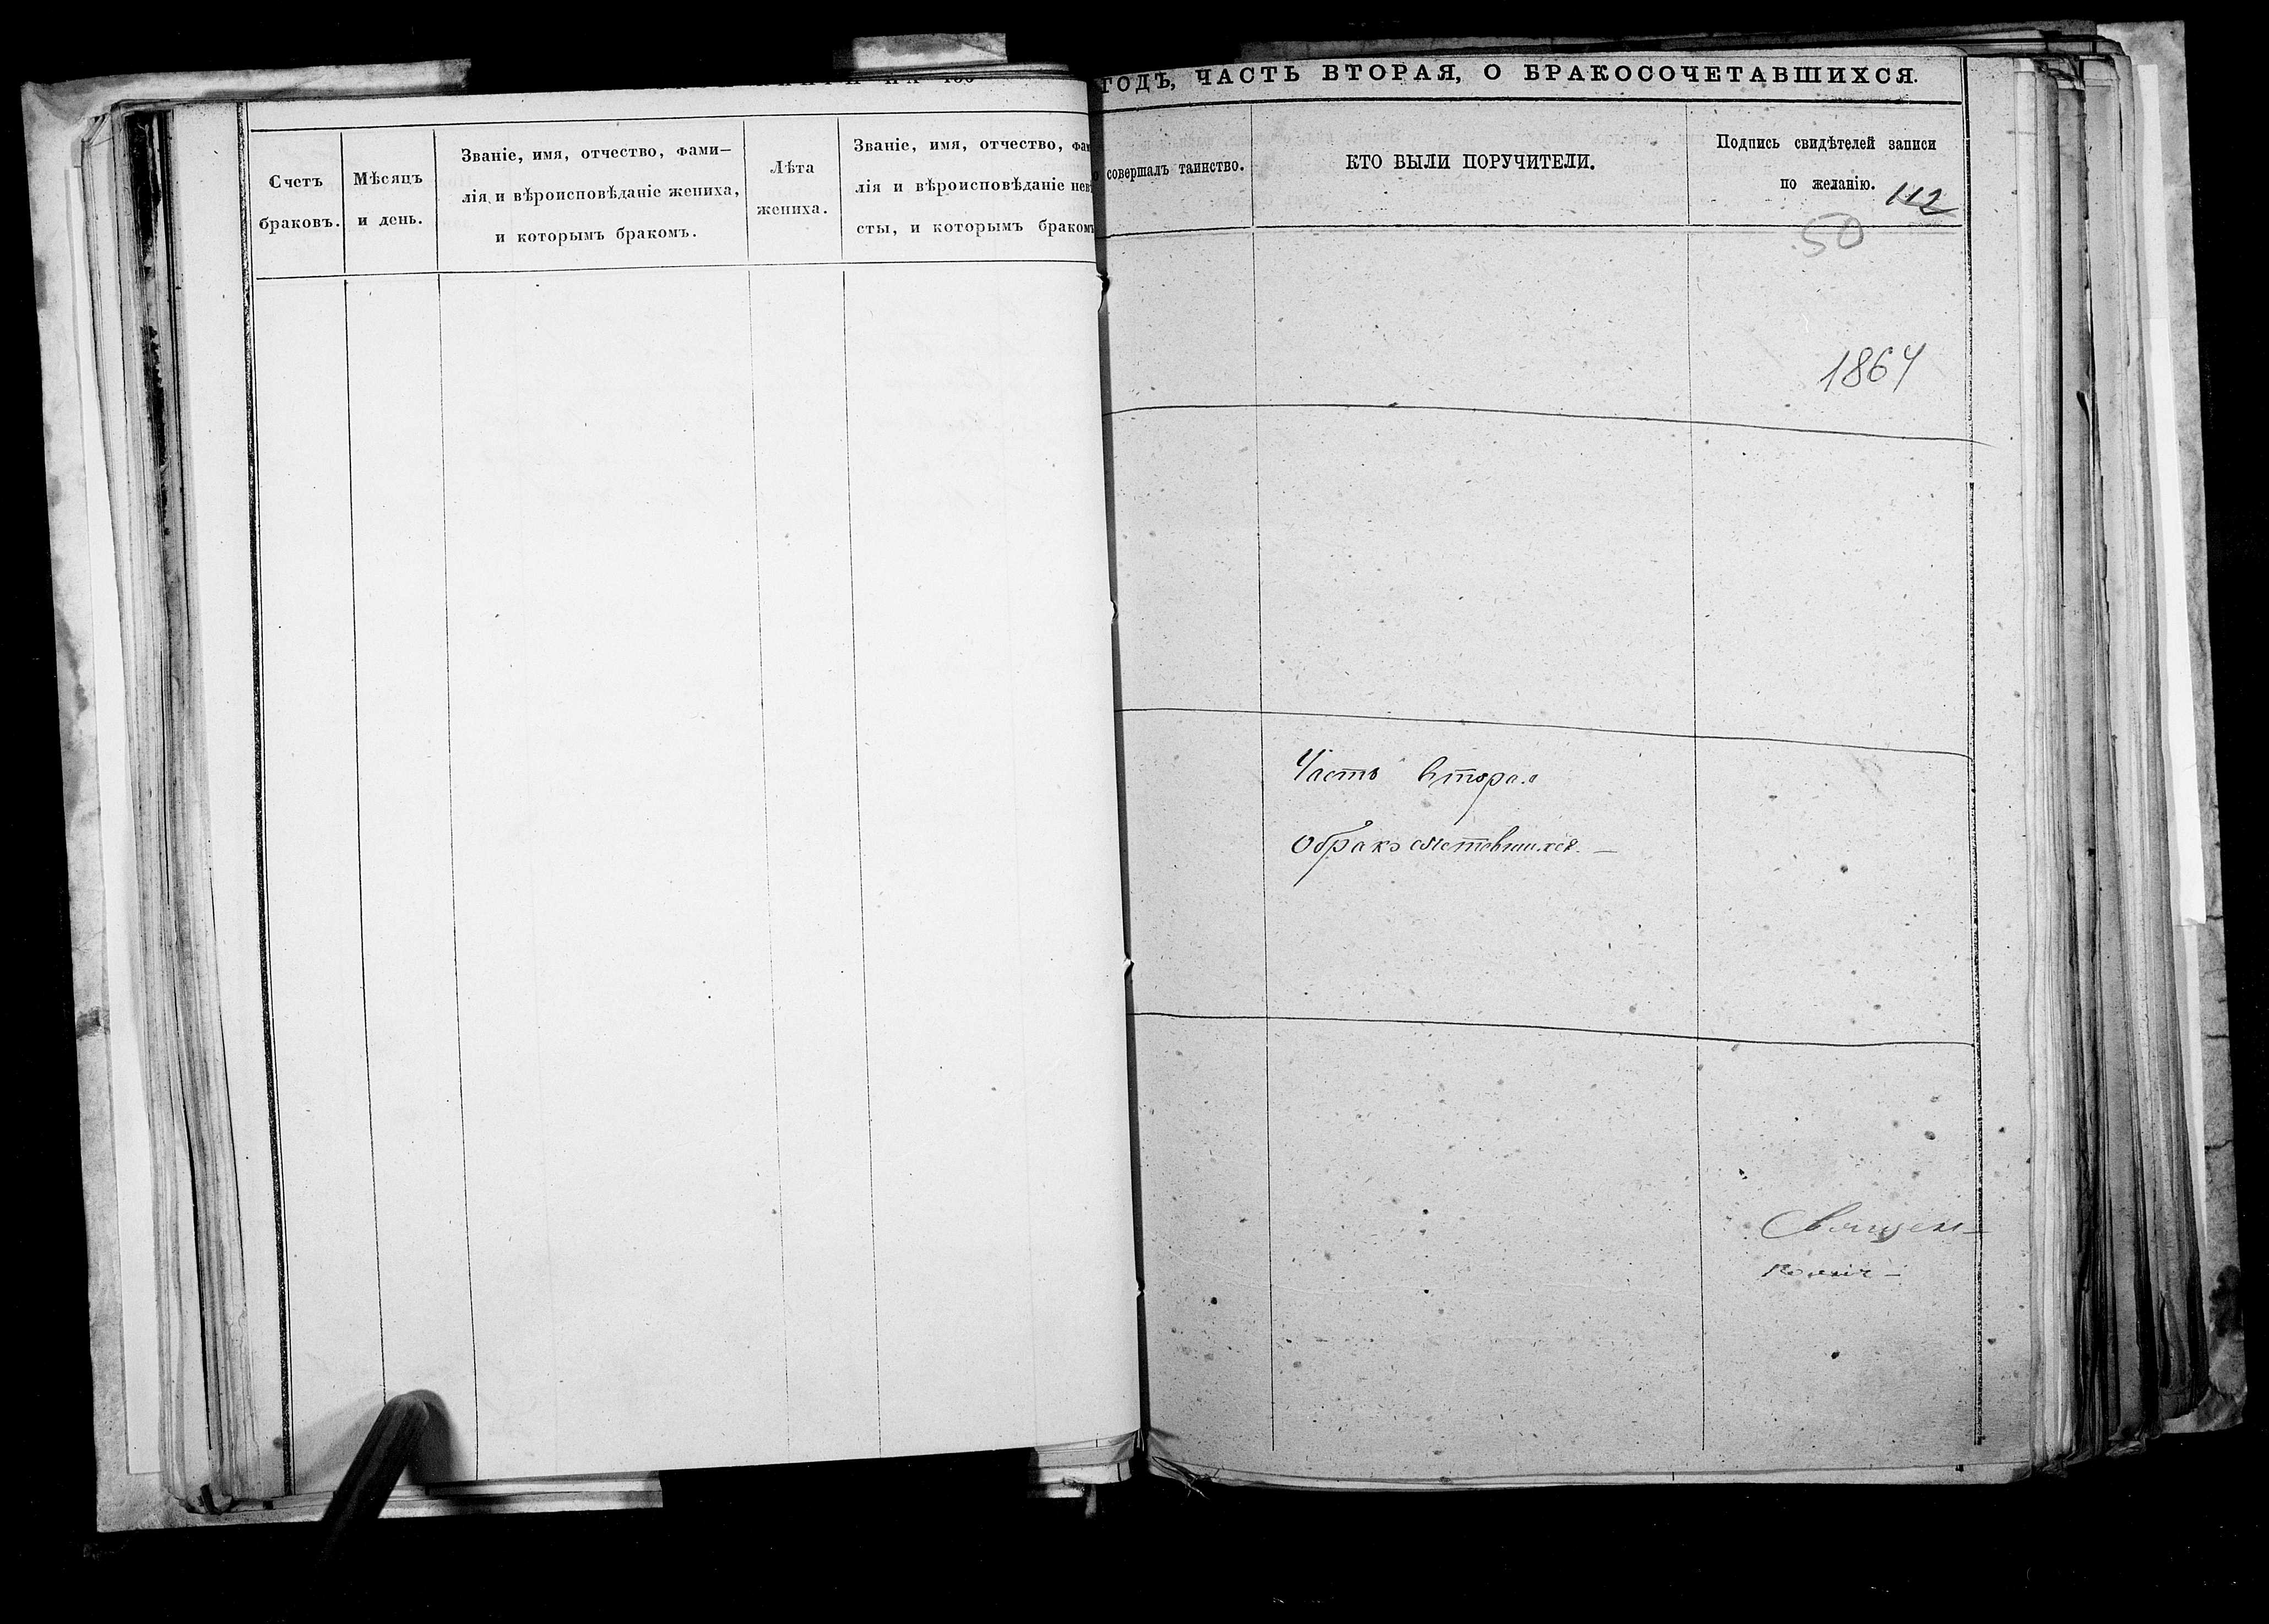 Счетъ
браковъ.
Мѣсяцъ
и день.
Званіе, имя, отчество, фами–
лія и вѣроисповѣданіе жениха,
и которымъ бракомъ.
Лѣта
жениха.
Званіе, имя, отчество, фам
лія и вѣроисповѣданіе нев
сты, и которымъ бракомъ
ГОДЪ, ЧАСТЬ ВТОРАЯ, О БРАКОСОЧЕТАВШИХСЯ.
совершалъ таинство.
КТО БЫЛИ ПОРУЧИТЕЛИ.
Подпись свидѣтелей записи
по желанію.
112
50
1864
Часть вторая
о бракосочетавшихся. —
Священ–